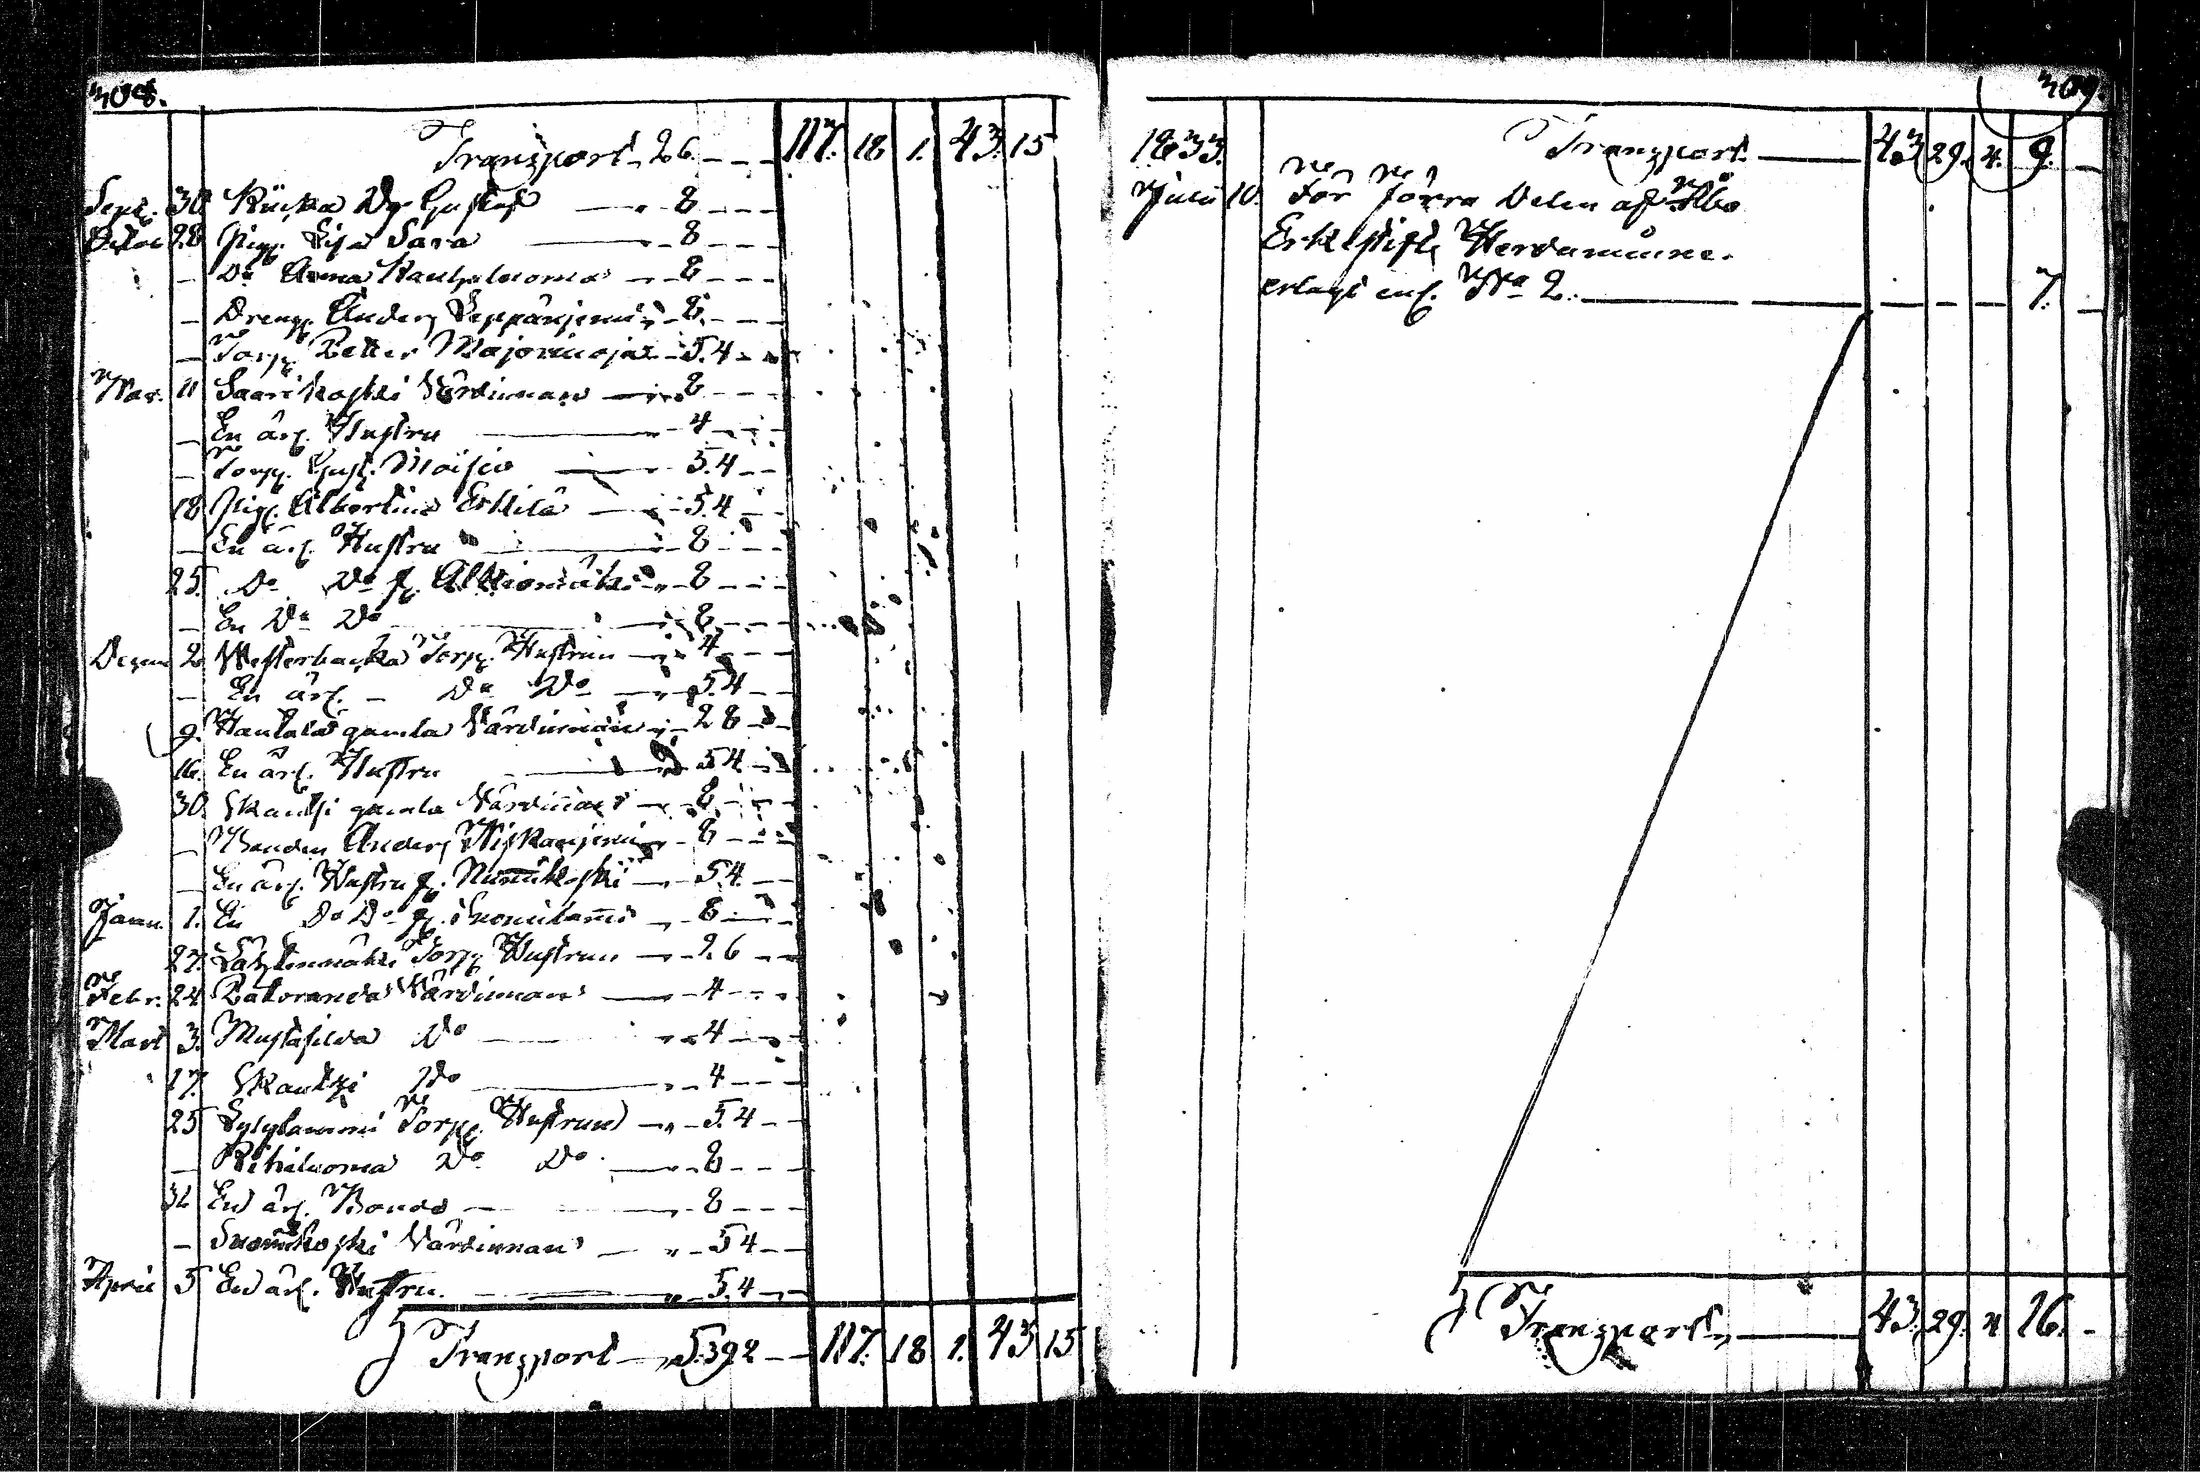 308.
Transport 26. 117. 18 1. 43. 15
Sept. 30 Rücka Dr Gustaf 8
28 Pig. Lisa Sara 8
Do Anna 8
Dreng. Anders Seppänjemi 8.
Torp. Petter Majorinoja 5.4
Nov. 11 Saarikoski Värdinnan 8
En ärl. Hustru 4
Torp. Gust. Moisio 5.4
18 Pig. Albertina Erkilä 5.4
En ärl. Hustru 8
25. Do Do fr. Alkiomäki 8
En Do Do 8
Decem 2 Westerbacka Torp. Hustrun 4
En ärl. Do Do 5.4
9. Hautala gamla Värdinnan 28
16. En ärl. Hustru 54
30. Skantsi gamla Värdinan 8
Bonden Anders Niskanjemi 8
En ärl. Hustru fr. 54.
Janu. 1. En Do Do fr. 8
27. Torp. Hustrun 26
Febr. 24 Värdinnan 4
Mart 3. Mustasilda Do 4
17. Skantzi Do 4
25 Sylylammi Torp. Hustrun 5.4
Rihiluoma Do Do 8
31 En ärl. Bonde 8
Suomikoski Värdinnan 54
April 5 En ärl. Hustru. 5.4
Transport 5.392 117. 18 1. 43 15
309.
1833. Transport 43 29. 4. 9.
Julii 10. För förra delen af Åbo
Erkestifts Herdaminne.
erlagt enl. No 2. 7.
Transport 43. 29. 4 16.